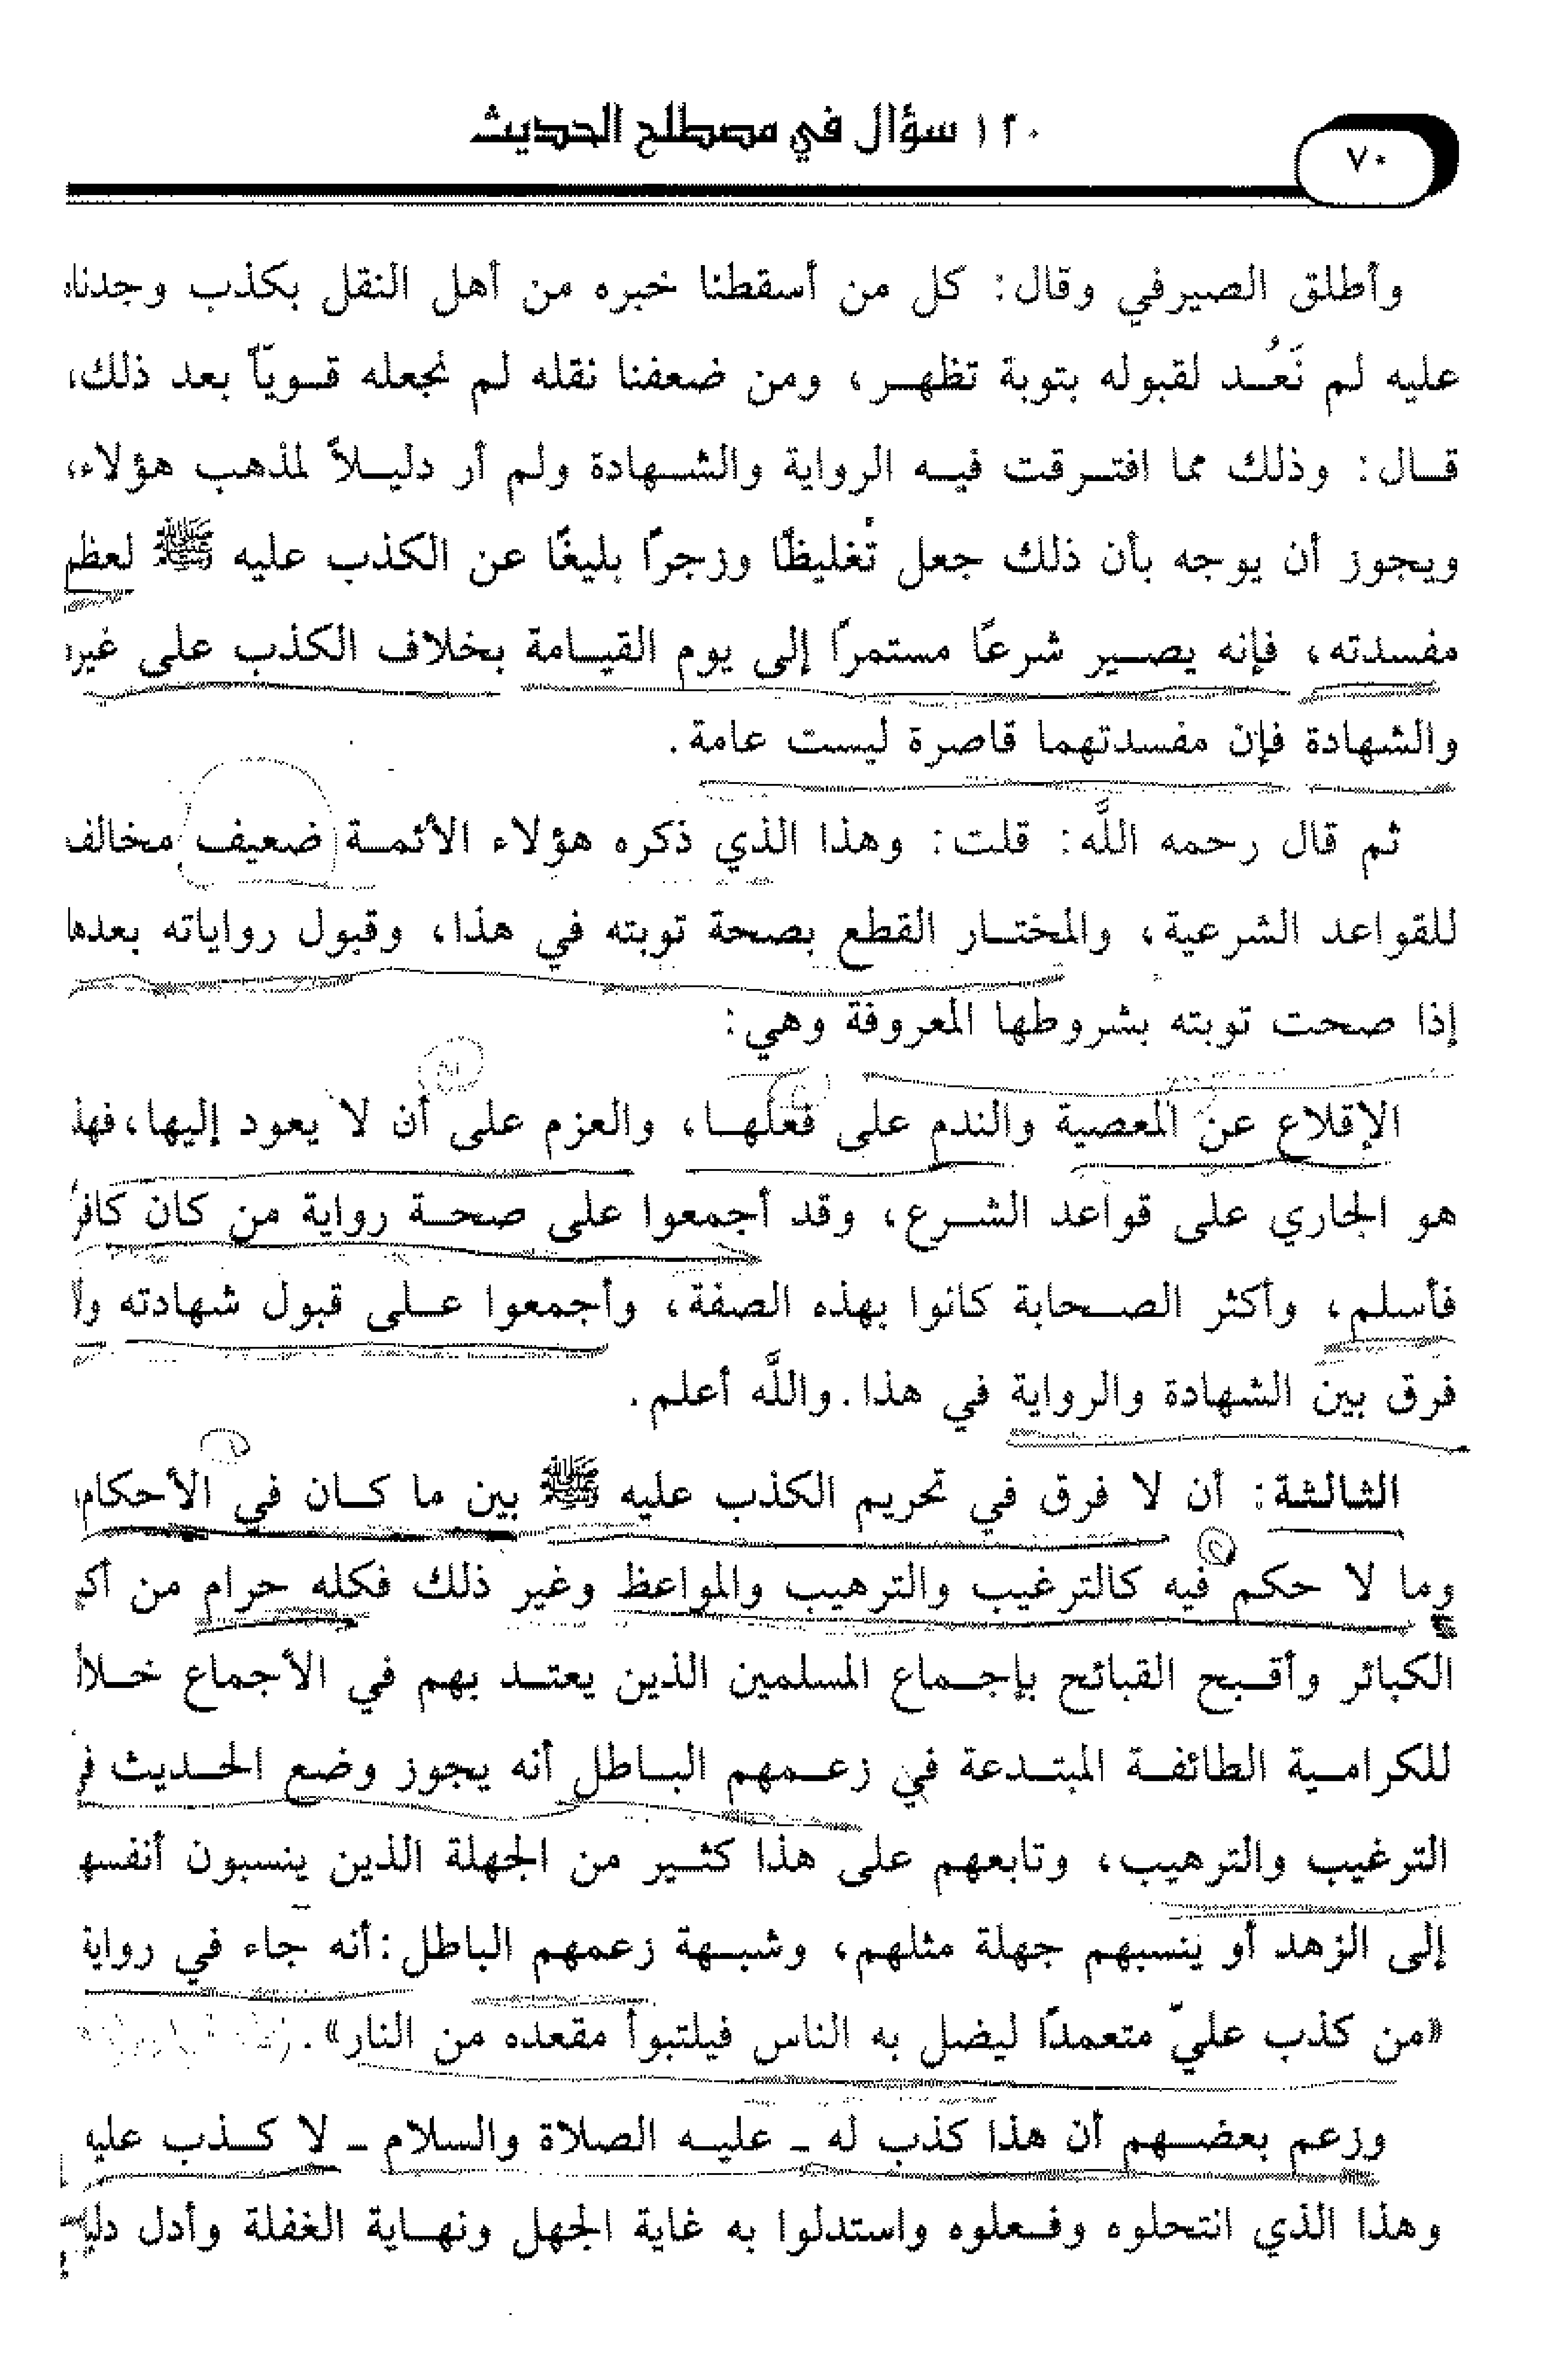 ١٢٠ سؤال في مصطلح الحديث
٧٠
وأطلق الصيرفي وقال: كل من أسقطنا خبره من أهل النقل بكذب وجدناه
عليه لم نَعُـد لقبوله بتوبة تظهـر، ومن ضعفنا نقله لم نجعله قـويّاً بعد ذلك،
قـال: وذلك مما افتـرقت فيـه الرواية والشـهادة ولم أر دليـلاً لمذهب هؤلاء،
ويجوز أن يوجه بأن ذلك جعل تُغليظًا وزجرًا بليغًا عن الكذب عليه ﷺ لعظم
مفسدته، فإنه يصـير شرعًا مستمرًا إلى يوم القيـامة بخلاف الكذب على غيره
والشهادة فإن مفسدتهما قاصرة ليست عامة.
ثم قال رحمه اللَّه: قلت: وهذا الذي ذكره هؤلاء الأئمـة ضعيف مخالف
للقواعد الشرعية، والمختـار القطع بصحة توبته في هذا، وقبول رواياته بعدها
إذا صحت توبته بشروطها المعروفة وهي:
الإقلاع عن المعصية والندم على فعلهـا، والعزم على أن لا يعود إليها، فهذ
هو الجاري على قواعد الشـرع، وقد أجمعوا على صحـة رواية من كان كافرً
فأسلم، وأكثر الصـحابة كانوا بهذه الصفة، وأجمعوا عـلى قبول شهادته ولا
فرق بين الشهادة والرواية في هذا. واللَّه أعلم.
الثالثة: أن لا فرق في تحريم الكذب عليه ﷺ بين ما كـان في الأحكام،
وما لا حكم فيه كالترغيب والترهيب والمواعظ وغير ذلك فكله حرام من
الكبائر وأقـبح القبائح بإجـماع المسلمين الذين يعتـد بهم في الأجماع
للكرامـية الطائفـة المبتـدعة في زعـمهم البـاطل أنه يجوز وضع الحـديث
الترغيب والترهيب، وتابعهم على هذا كثـير من الجهلة الذين ينسبون
إلى الزهد أو ينسبهم جهلة مثلهم، وشبـهة زعمهم الباطل: أنه جاء في رواية
«من كذب عليّ متعمدًا ليضل به الناس فيلتبوأ مقعده من النار».
وزعم بعضـهم أن هذا كذب له ـ عليـه الصلاة والسلام ـ لا كـذب عليه
وهذا الذي انتحلوه وفـعلوه واستدلوا به غاية الجهل ونهـاية الغفلة وأدل